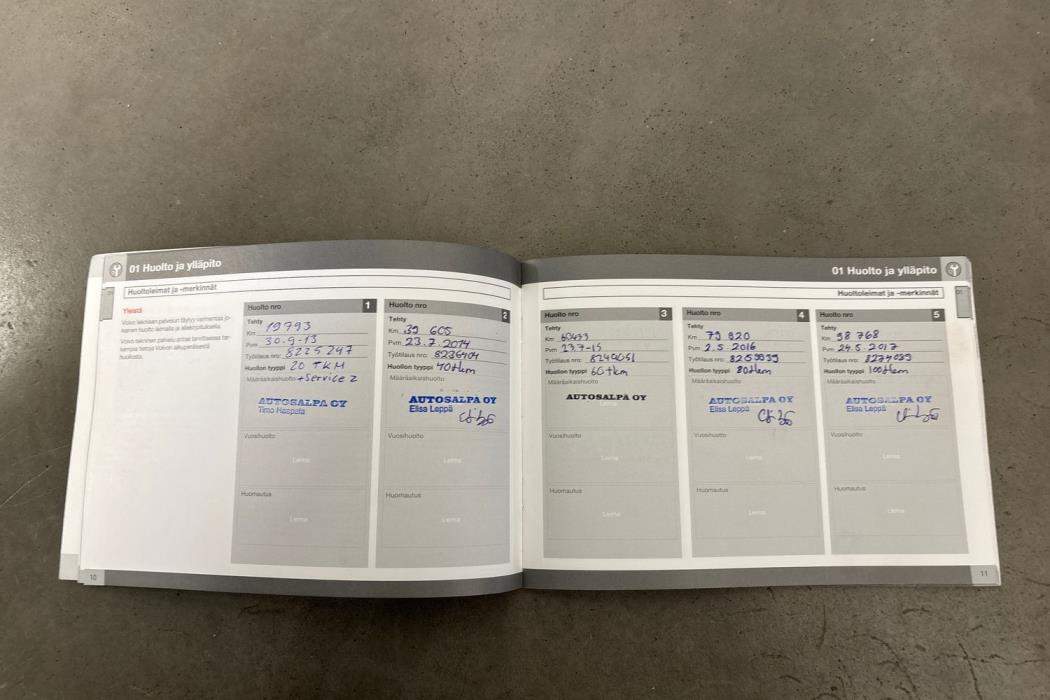 01 Huolto ja ylläpito
Huoltoleimat ja -merkinnät
Yleistä
Volvo tekninen palvelun täytyy varmentaa jo-
kainen huolto leimalla ja allekirjoituksella.
Volvo tekninen palvelu antaa tarvittaessa tar-
kempia tietoja Volvon alkuperäisestä
huollosta.
Huolto nro 1
Tehty
Km 19793
Pvm 30-9-13
Työtilaus nro: 8225247
Huollon tyyppi 20 TKM
Määräaikaishuolto +Service 2
AUTOSALPA OY
Timo Haapala
Vuosihuolto
Leima
Huomautus
Leima
Huolto nro 2
Tehty
Km 39 605
Pvm 23.7.2014
Työtilaus nro: 8236404
Huollon tyyppi 40tkm
Määräaikaishuolto
AUTOSALPA OY
Elisa Leppä
Vuosihuolto
Leima
Huomautus
Leima
10
01 Huolto ja ylläpito
Huoltoleimat ja -merkinnät
Huolto nro 3
Tehty
Km 60433
Pvm 23.7-15
Työtilaus nro: 8246051
Huollon tyyppi 60tkm
Määräaikaishuolto
AUTOSALPA OY
Vuosihuolto
Leima
Huomautus
Leima
Huolto nro 4
Tehty
Km 79 820
Pvm 2.5.2016
Työtilaus nro: 8259939
Huollon tyyppi 80tkm
Määräaikaishuolto
AUTOSALPA OY
Elisa Leppä
Vuosihuolto
Leima
Huomautus
Leima
Huolto nro 5
Tehty
Km 98 768
Pvm 24.5.2017
Työtilaus nro: 8274039
Huollon tyyppi 100tkm
Määräaikaishuolto
AUTOSALPA OY
Elisa Leppä
Vuosihuolto
Leima
Huomautus
Leima
11